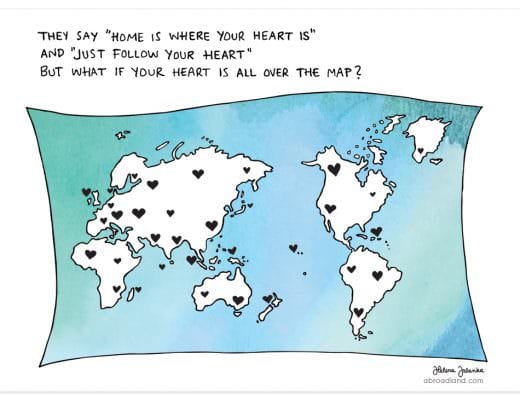 THEY SAY "HOME IS WHERE YOUR HEART IS"
AND "JUST FOLLOW YOUR HEART"
BUT WHAT IF YOUR HEART IS ALL OVER THE MAP?
abroadland.com